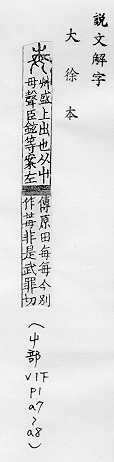 說文解字
大徐本
每 艸盛上出也从屮
母聲臣鉉等案左
傳原田每每今別
作莓非是武罪切
(屮部 V1下 P1 a7~a8)